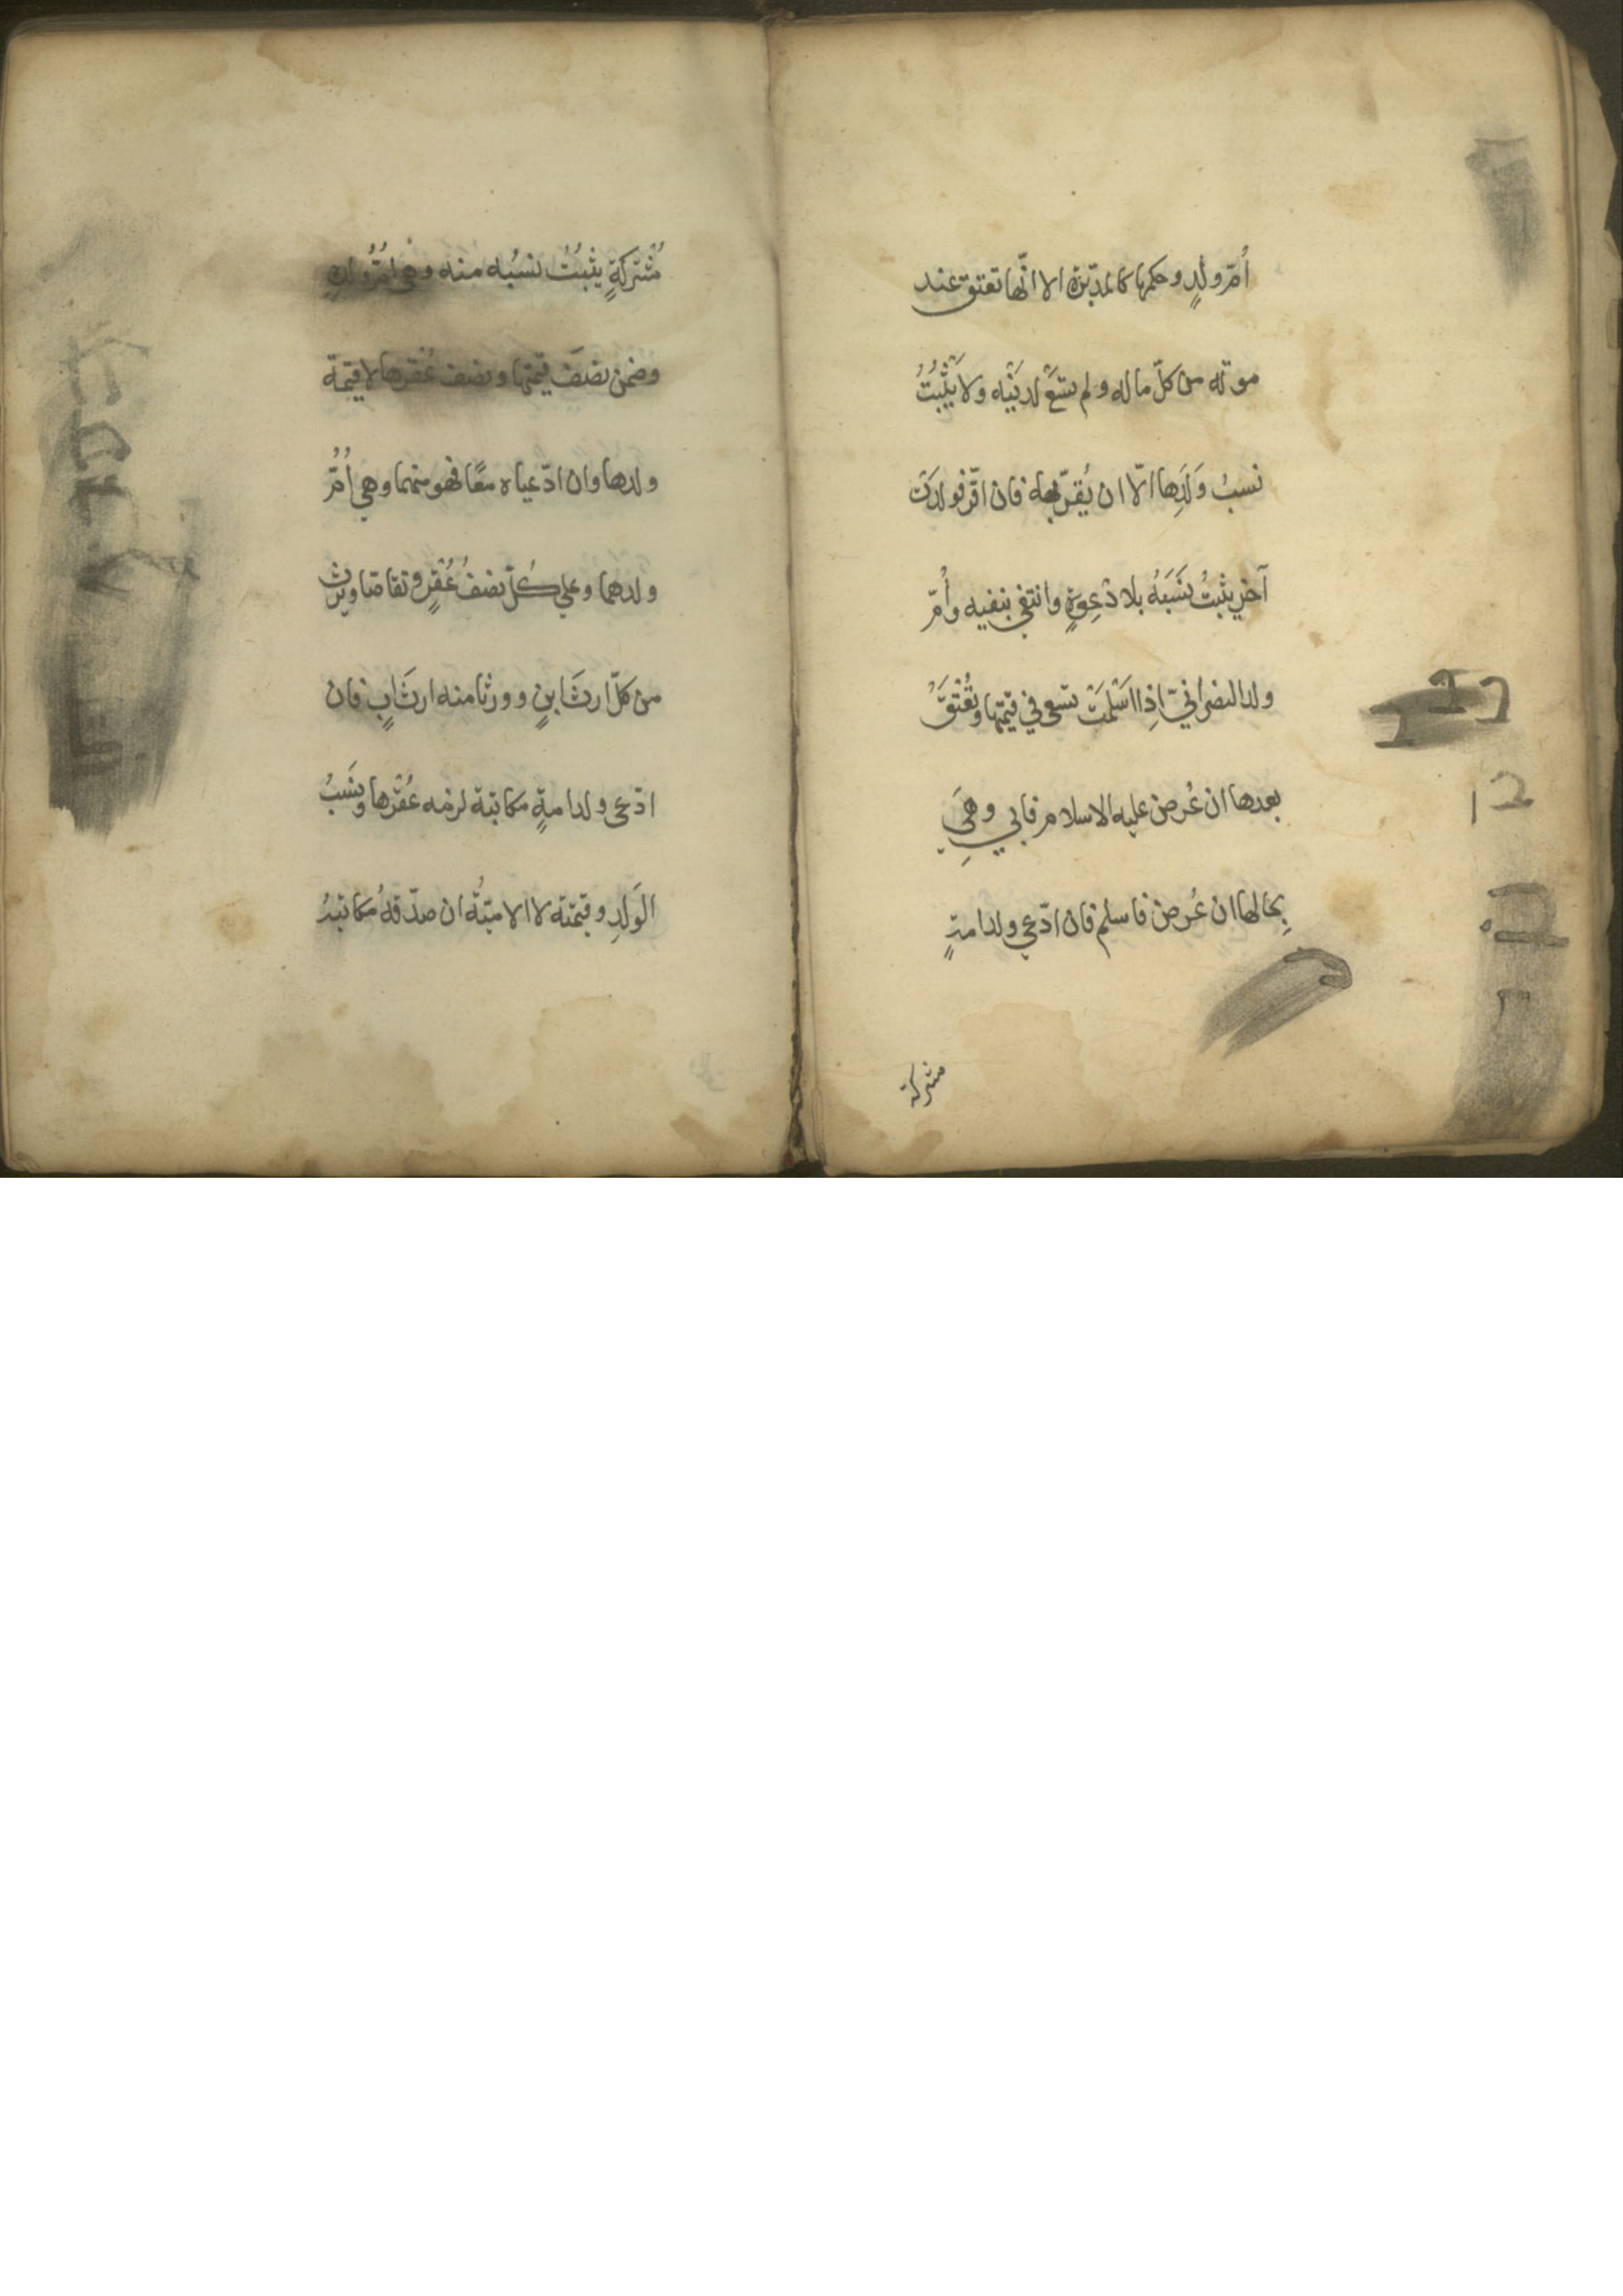 أمّ ولدٍ وحكمها كالمدبّرة الا انّها تعتق عند
موته من كلّ ماله ولم تسْعَ لدَيْنِه ولا يَثْبُتُ
نسبُ وَلَدِها الّا ان يُقرّ به فان اقرّ فولدت
آخر يثبتُ نَسَبُهُ بلا دَعِوةٍ وانتفي بنفيه وأمّ
ولد النصرانيّ اذا اسْلمَتْ تسعى في قيمتها وتُعْتَقُ
بعدها ان عُرض عليه الاسلام فابي وهِيَ
بِحالها ان عُرض فاسلم فان ادّعي ولد امةٍ
مشركة
مُشْتركةٍ يثبُتُ نسبُه منه وهي امُّ ولدِهِ
وضمن نصفَ قيمتها ونصف عُقرها لا قيمة
ولدها وان ادّعياه معًا فهو منهما وهي أُمُّ
ولدهما وعلي كُلّ نصفُ عُقْرٍ وتقاصّا ويرث
من كلّ ارثَ ابنٍ وورثا منه ارثَ ابٍ فان
ادّعى ولد امةٍ مكاتبة لزمه عُقْرها ونَسَبُ
الوَلَدِ وقيمته لا الامَةُ ان صدّقهُ مكاتبهُ